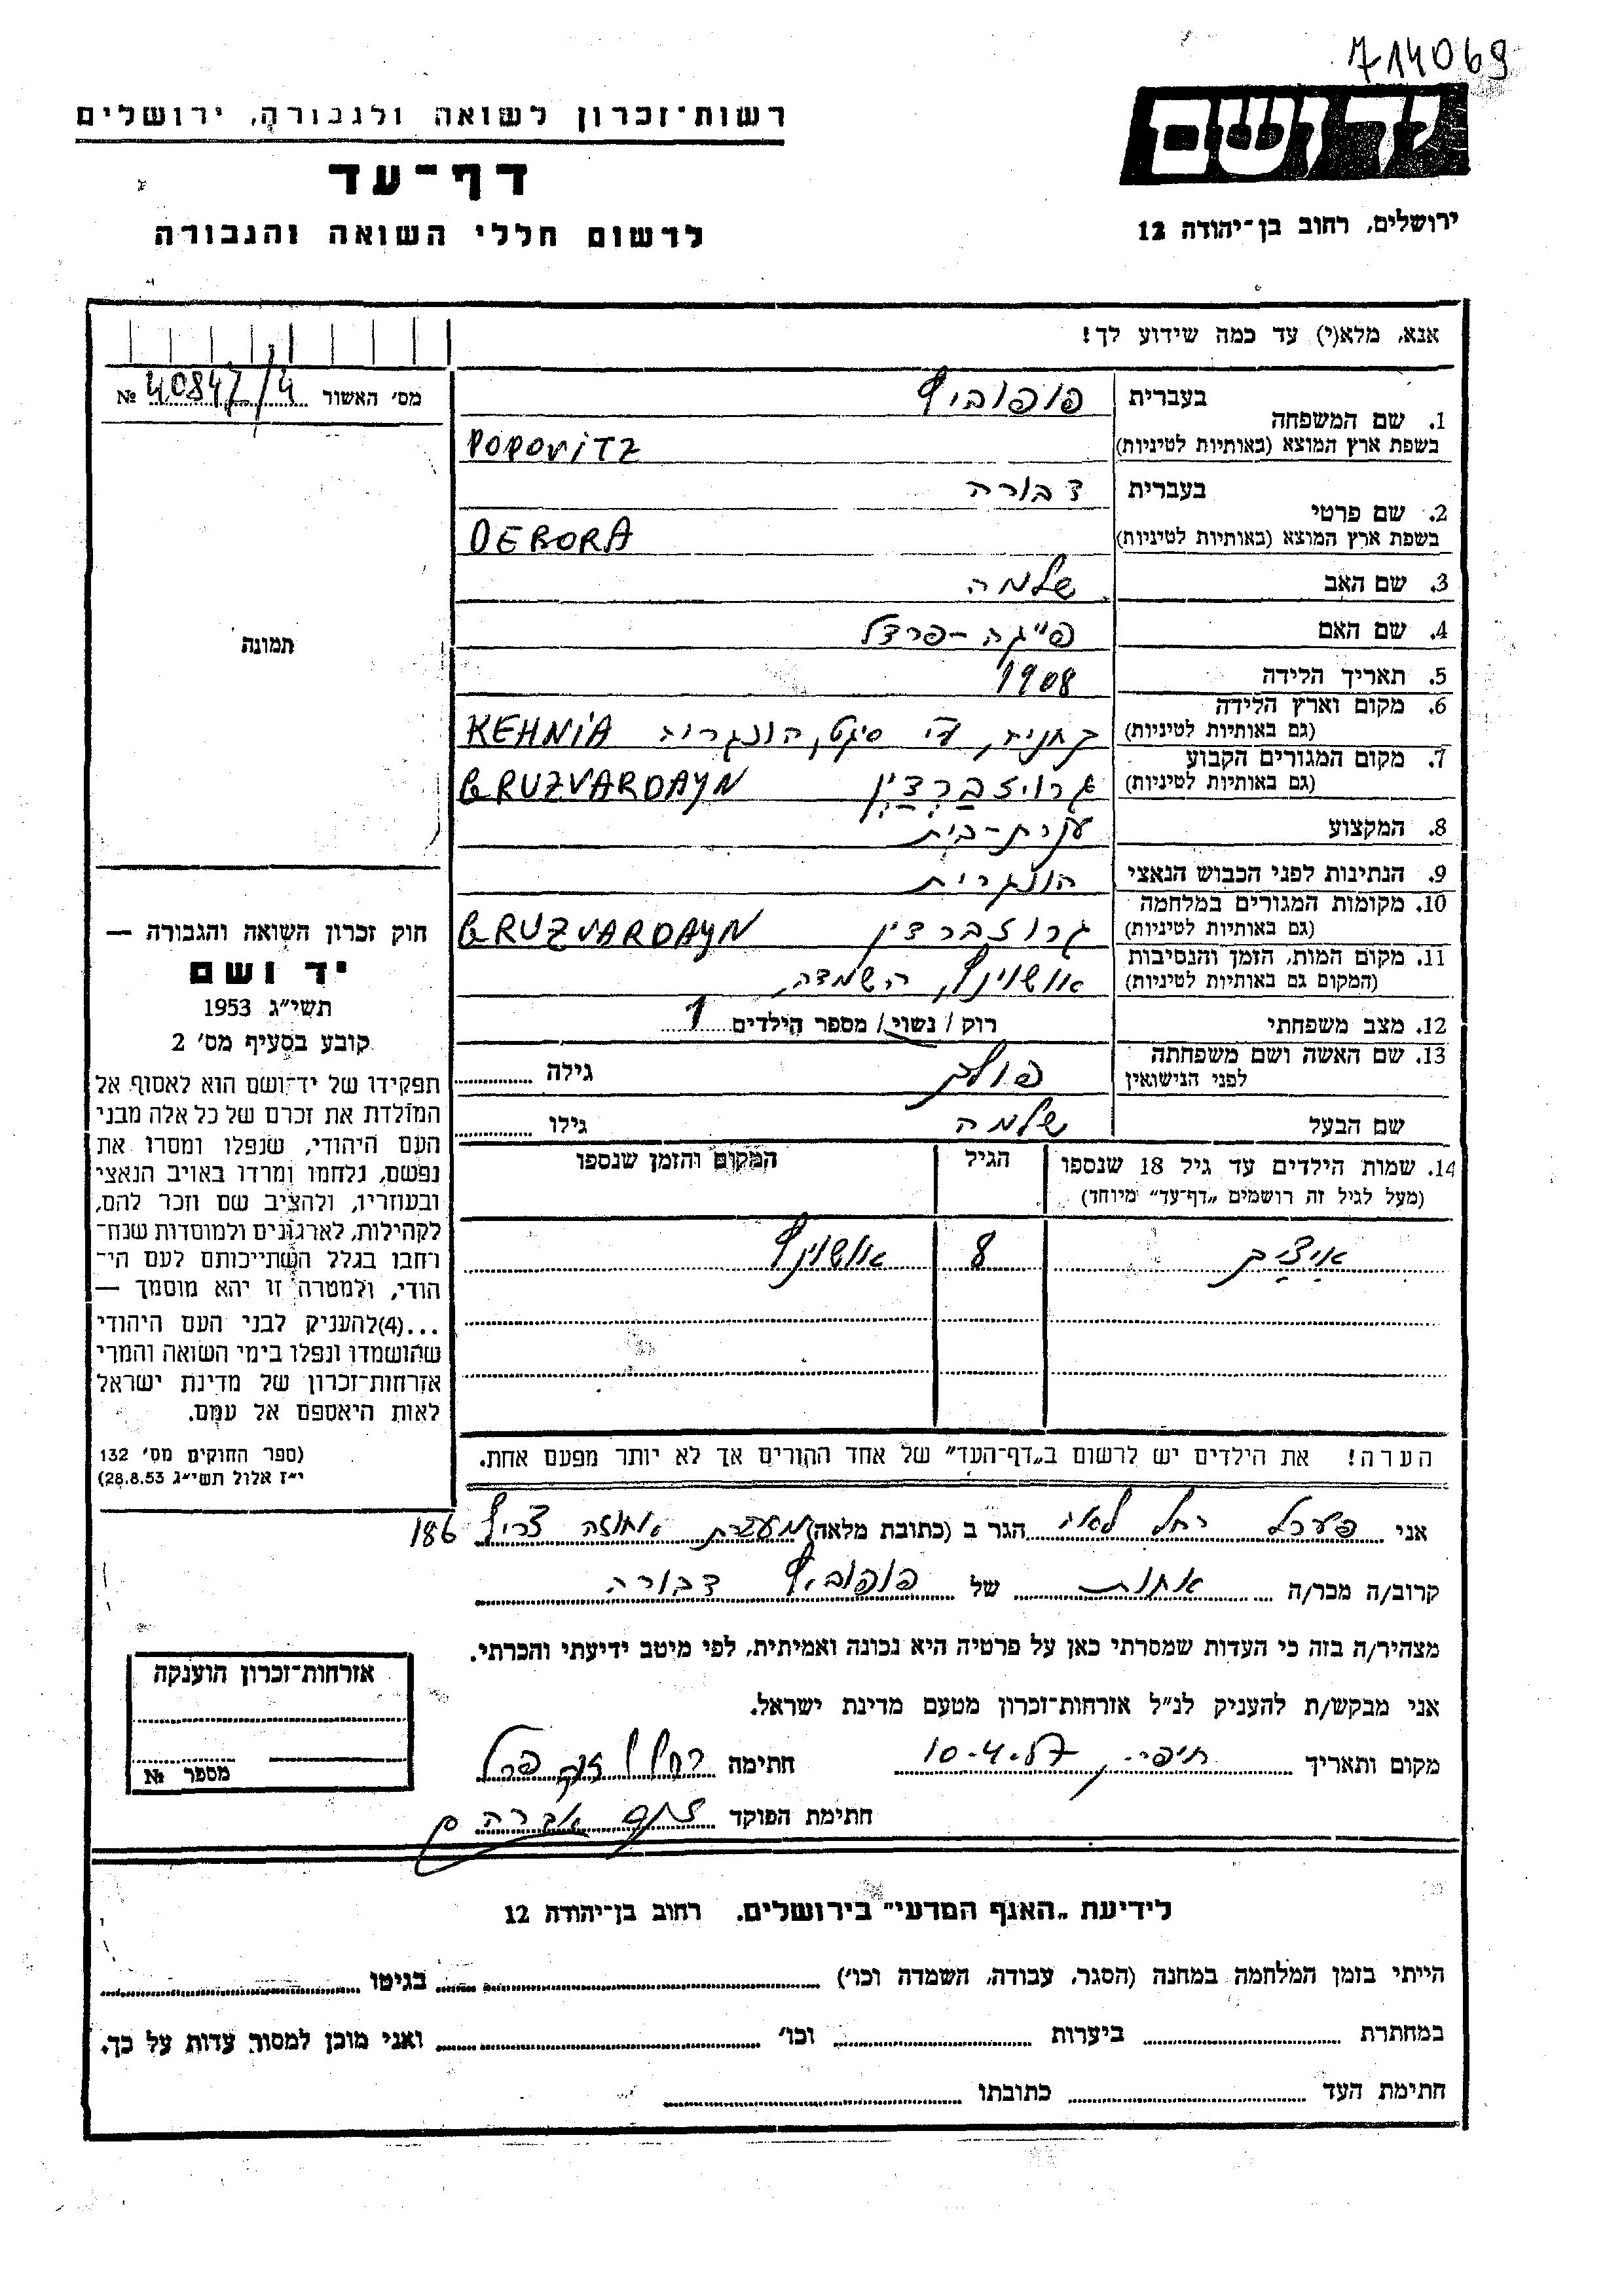 714069
יד ושם
ירושלים, רחוב בן-יהודה 12
רשות-זכרון לשואה ולגבורה, ירושלים
דף-עד
לרשום חללי השואה והגבורה
אנא, מלא(י) עד כמה שידוע לך!
מס' האשור 40847/4 №
תמונה
1. שם המשפחה
בעברית פופוביץ
בשפת ארץ המוצא (באותיות לטיניות) POPOVITZ
2. שם פרטי
בעברית דבורה
בשפת ארץ המוצא (באותיות לטיניות) DEBORA
3. שם האב שלמה
4. שם האם פייגה-פרצל
5. תאריך הלידה 1908
6. מקום וארץ הלידה
(גם באותיות לטיניות) קחניה, ע"י סיגט, הונגריה KEHNIA
7. מקום המגורים הקבוע
(גם באותיות לטיניות) גרויזברדין GRUZVARDAYN
8. המקצוע עקרת-בית
9. הנתינות לפני הכבוש הנאצי הונגרית
10. מקומות המגורים במלחמה
(גם באותיות לטיניות) גרוזברדין GRUZVARDAYN
11. מקום המות, הזמן והנסיבות
(המקום גם באותיות לטיניות) אושוויץ, השמדה,
12. מצב משפחתי רוק / נשוי / מספר הילדים 1
13. שם האשה ושם משפחתה
לפני הנישואין פולק גילה
שם הבעל שלמה גילו
14. שמות הילדים עד גיל 18 שנספו
(מעל לגיל זה רושמים „דף-עד" מיוחד)
הגיל
המקום והזמן שנספו
איציק 8 אושויץ
הערה! את הילדים יש לרשום ב„דף-העד" של אחד ההורים אך לא יותר מפעם אחת.
חוק זכרון השואה והגבורה —
יד ושם
תשי"ג 1953
קובע בסעיף מס' 2
תפקידו של יד-ושם הוא לאסוף אל
המולדת את זכרם של כל אלה מבני
העם היהודי, שנפלו ומסרו את
נפשם, נלחמו ומרדו באויב הנאצי
ובעוזריו, ולהציב שם וזכר להם,
לקהילות, לארגונים ולמוסדות שנח-
רחבו בגלל השתייכותם לעם הי-
הודי, ולמטרה זו יהא מוסמך —
...(4)להעניק לבני העם היהודי
שהושמדו ונפלו בימי השואה והמרי
אזרחות-זכרון של מדינת ישראל
לאות היאספם אל עמם.
(ספר החוקים מס' 132
י"ז אלול תשי"ג 28.8.53)
אני פערל רחל לאה הגר ב (כתובת מלאה) מעברת אחוזה צריף 186
קרוב/ה מכר/ה אחות של פופוביץ דבורה
מצהיר/ה בזה כי העדות שמסרתי כאן על פרטיה היא נכונה ואמיתית, לפי מיטב ידיעתי והכרתי.
אני מבקש/ת להעניק לנ"ל אזרחות-זכרון מטעם מדינת ישראל.
מקום ותאריך חיפה, 10.4.57 חתימה רחל פרל
חתימת הפוקד אברהם
אזרחות-זכרון הוענקה
מספר №
לידיעת „האגף המדעי" בירושלים. רחוב בן-יהודה 12
הייתי בזמן המלחמה במחנה (הסגר, עבודה, השמדה וכו') בגיטו
במחתרת ביערות וכו' ואני מוכן למסור עדות על כך.
חתימת העד כתובתו